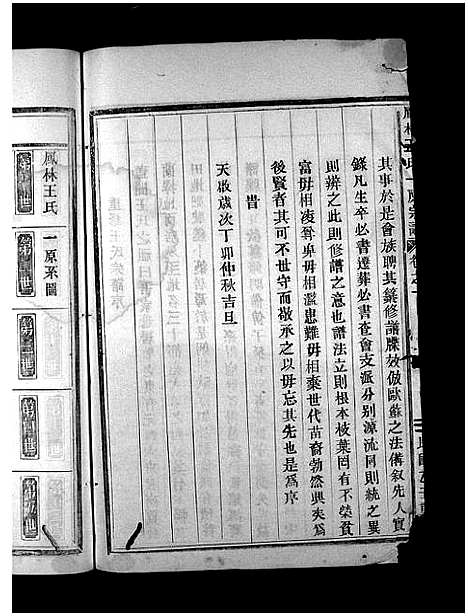 其事於是會族聘其錄修譜牒效倣歐蘇之法備叙先人實
錄凡生卒必書遷葬必書查會支派分別源流同則統之異
則辨之此則修譜之意也譜法立則根本枝葉罔有不榮貧
富毋相凌尊卑毋相瀆患難毋相棄世代苗裔勃然興矣為
後賢者其可不世守而敬承之以毋忘其先也是為序
旹
天啟歲次丁卯仲秋吉旦
鳳林王氏一原系圖
第一世
第二世
第三世
第四世
第五世